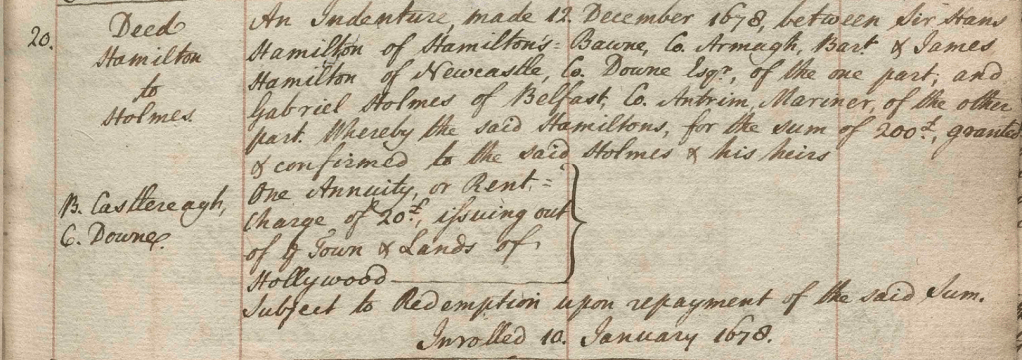 20.
Deed
Hamilton
to
Holmes
B. Castlereagh,
C. Downe.
An Indenture, made 12. December 1678, between Sir Hans
Hamilton of Hamilton's=Bawne, Co. Armagh, Bart. & James
Hamilton of Newcastle, Co. Downe Esqr., of the one part; and
Gabriel Holmes of Belfast, Co. Antrim, Mariner, of the other
part. Whereby the said Hamiltons, for the sum of 200£, granted
& confirmed to the said Holmes & his heirs
One Annuity, or Rent=
Charge of 20£, issuing out
of ye Town & Lands of
Hollywood
Subject to Redemption upon repayment of the said Sum.
Inrolled 10. January 1678.